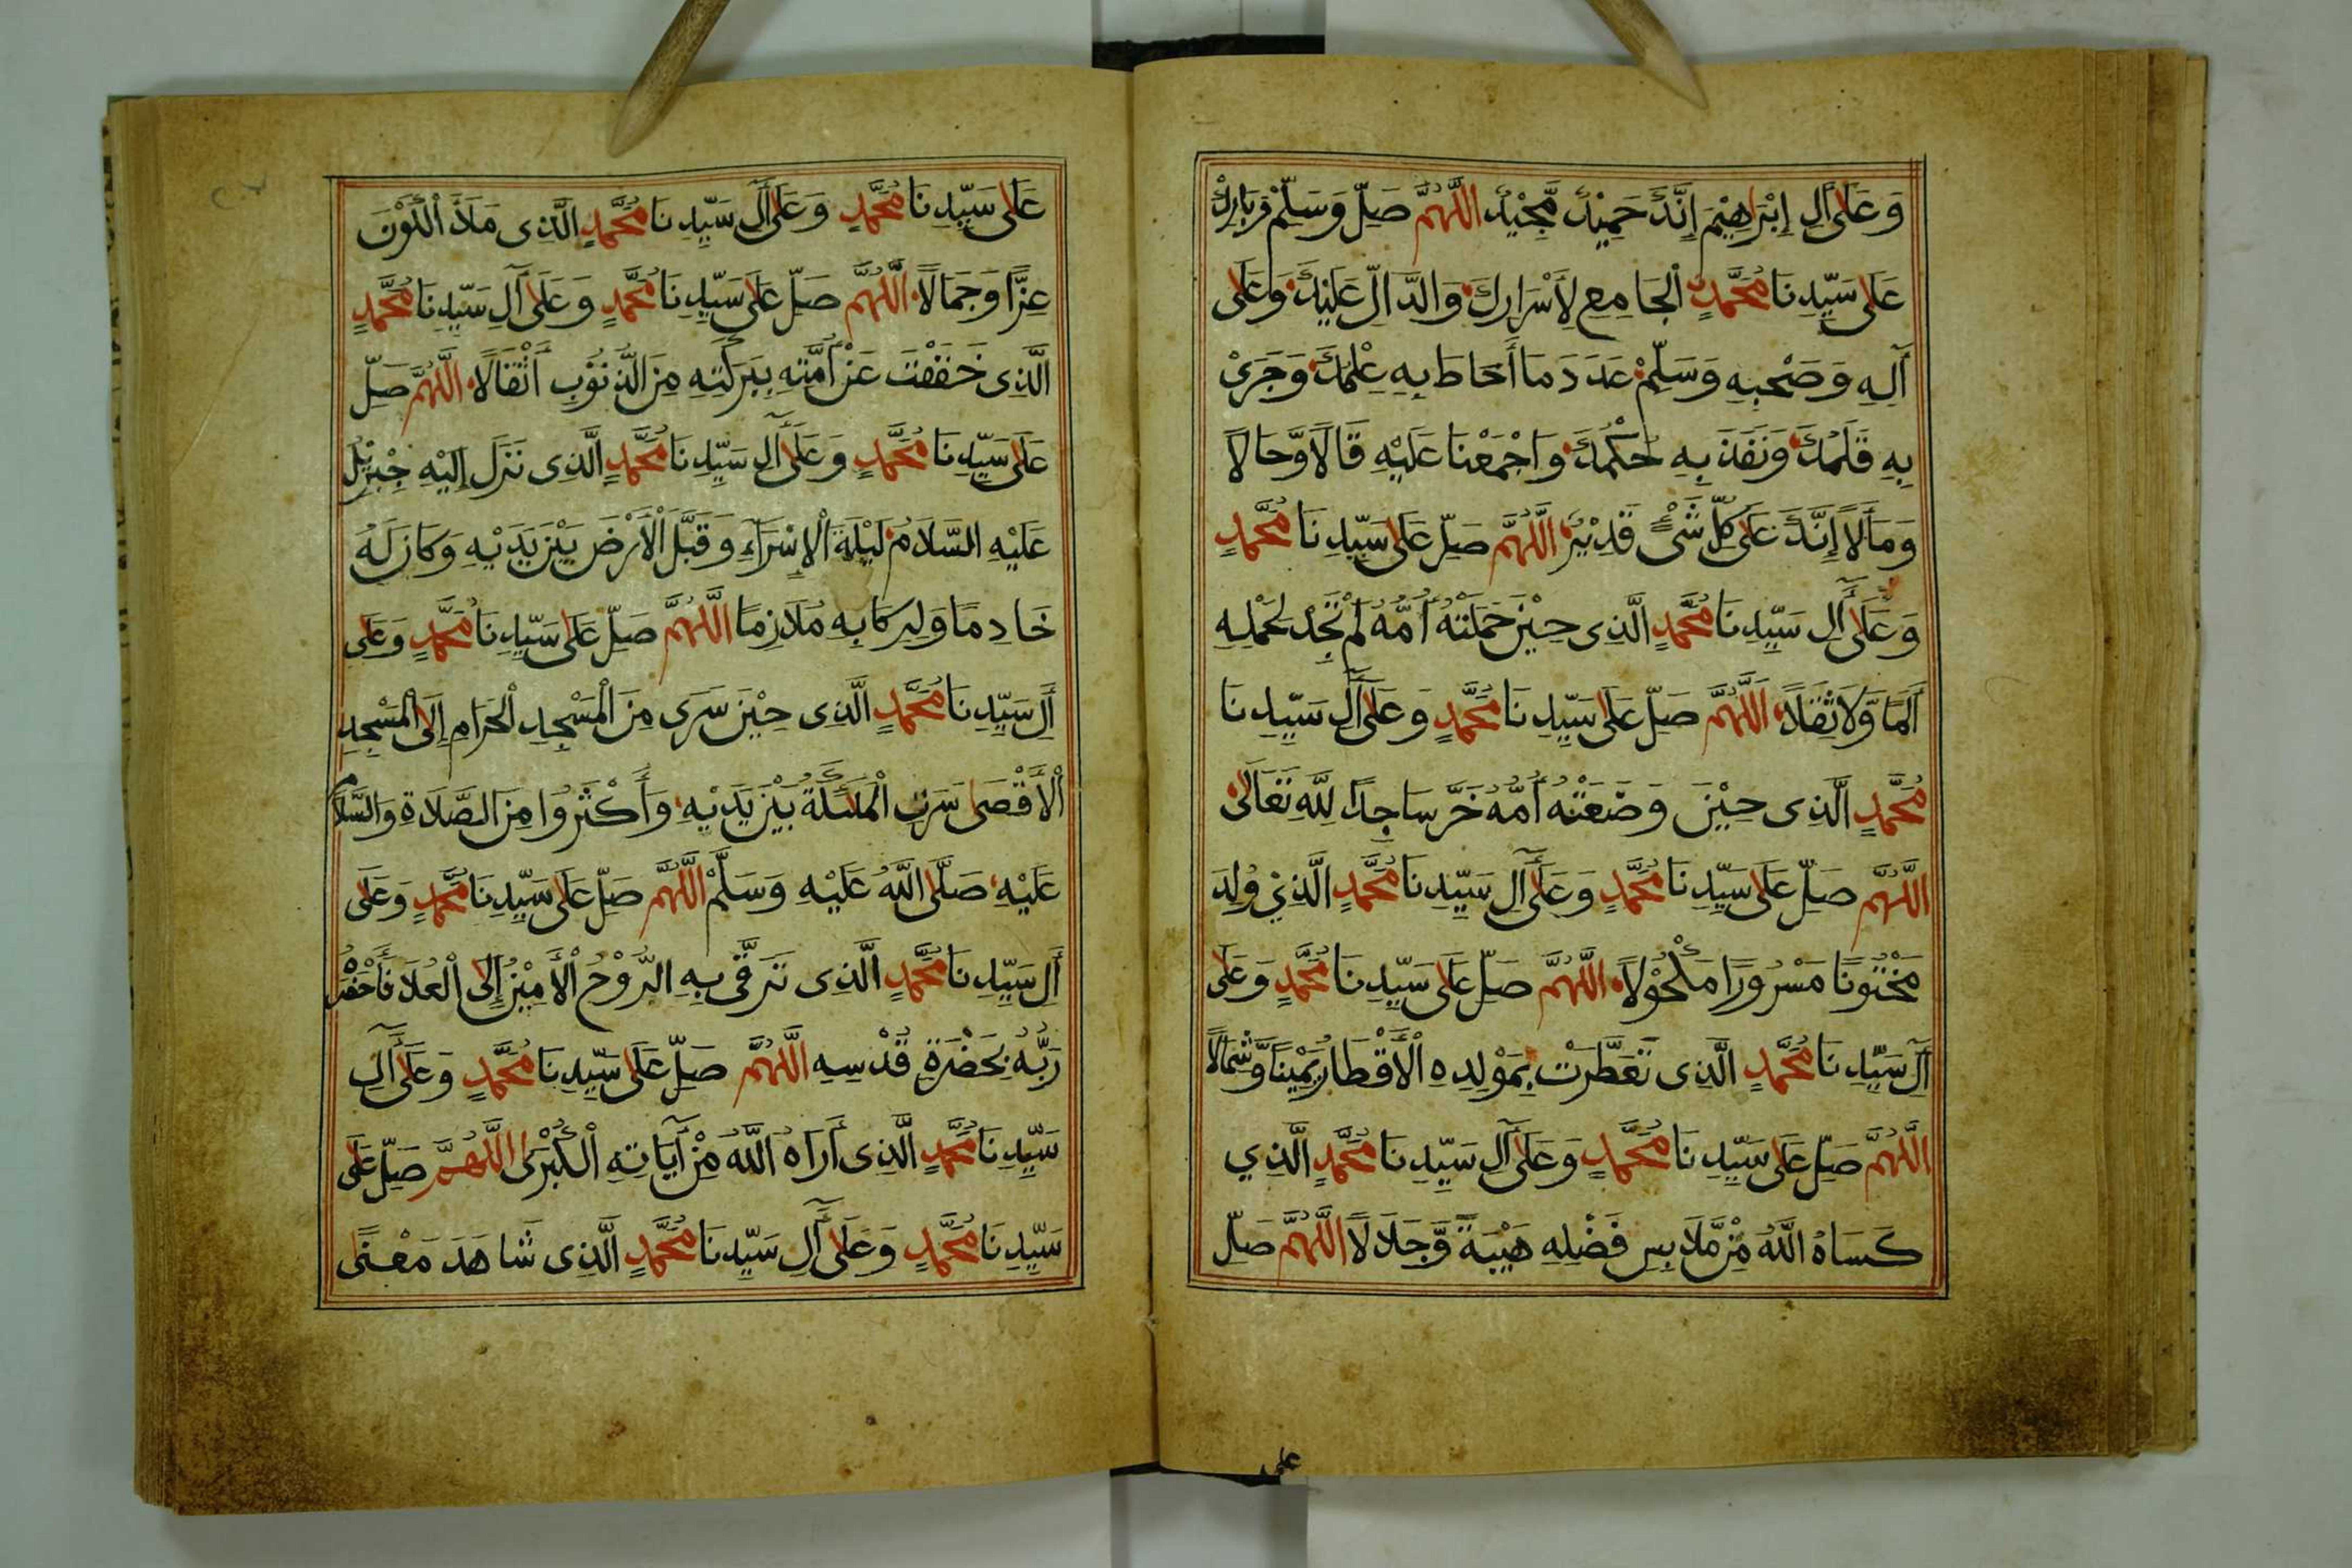 وَعَلَى آلِ إِبْرَاهِيْمَ إِنَّكَ حَمِيْدٌ مَّجِيْدٌ اللَّهُمَّ صَلِّ وَسَلِّمْ وَبَارِكْ
عَلَى سَيِّدِنَا مُحَمَّدٍ الْجَامِعِ لِأَسْرَارِكَ وَالدَّالِّ عَلَيْكَ وَعَلَى
آلِهِ وَصَحْبِهِ وَسَلِّمْ عَدَدَ مَا أَحَاطَ بِهِ عِلْمُكَ وَجَرَىْ
بِهِ قَلَمُكَ وَنَفَذَ بِهِ حُكْمُكَ وَاجْمَعْنَا عَلَيْهِ قَالًا وَّحَالًا
وَمَآلًا إِنَّكَ عَلَى كُلِّ شَيْءٍ قَدِيْرٌ اللَّهُمَّ صَلِّ عَلَى سَيِّدِنَا مُحَمَّدٍ
وَعَلَى آلِ سَيِّدِنَا مُحَمَّدٍ الَّذِى حِيْنَ حَمَلَتْهُ أُمُّهُ لَمْ تَجِدْ لِحَمْلِهِ
أَلَمًا وَّلَا ثِقَلًا اللَّهُمَّ صَلِّ عَلَى سَيِّدِنَا مُحَمَّدٍ وَعَلَى آلِ سَيِّدِنَا
مُحَمَّدٍ الَّذِى حِيْنَ وَضَعَتْهُ أُمُّهُ خَرَّ سَاجِدًا لِلَّهِ تَعَالَى
اللَّهُمَّ صَلِّ عَلَى سَيِّدِنَا مُحَمَّدٍ وَعَلَى آلِ سَيِّدِنَا مُحَمَّدٍ الَّذِيْ وُلِدَ
مَخْتُونًا مَسْرُورًا مَكْحُوْلًا اللَّهُمَّ صَلِّ عَلَى سَيِّدِنَا مُحَمَّدٍ وَعَلَى
آلِ سَيِّدِنَا مُحَمَّدٍ الَّذِى تَعَطَّرَتْ بِمَوْلِدِهِ الْأَقْطَارُ يَمِيْنًا وَّشِمَالًا
اللَّهُمَّ صَلِّ عَلَى سَيِّدِنَا مُحَمَّدٍ وَعَلَى آلِ سَيِّدِنَا مُحَمَّدٍ الَّذِي
كَسَاهُ اللَّهُ مِنْ مَّلَابِسِ فَضْلِهِ هَيْبَةً وَّجَلَالًا اللَّهُمَّ صَلِّ
على
عَلَى سَيِّدِنَا مُحَمَّدٍ وَعَلَى آلِ سَيِّدِنَا مُحَمَّدٍ الَّذِى مَلَأَ الْكَوْنَ
عِزًّا وَجَمَالًا اللَّهُمَّ صَلِّ عَلَى سَيِّدِنَا مُحَمَّدٍ وَعَلَى آلِ سَيِّدِنَا مُحَمَّدٍ
الَّذِى خَفَفْتَ عَنْ أُمَّتِهِ بِبَرَكَتِهِ مِنَ الذُّنُوْبِ أَثْقَالًا اللَّهُمَّ صَلِّ
عَلَى سَيِّدِنَا مُحَمَّدٍ وَعَلَى آلِ سَيِّدِنَا مُحَمَّدٍ الَّذِى نَزَلَ إِلَيْهِ جِبْرِيْلُ
عَلَيْهِ السَّلَامُ لَيْلَةَ الْإِسْرَآءِ وَقَبَّلَ الْأَرْضَ بَيْنَ يَدَيْهِ وَكَانَ لَهُ
خَادِمًا وَلِرِكَابِهِ مُلَازِمًا اللَّهُمَّ صَلِّ عَلَى سَيِّدِنَا مُحَمَّدٍ وَعَلَى
آلِ سَيِّدِنَا مُحَمَّدٍ الَّذِى حِيْنَ سَرَى مِنَ الْمَسْجِدِ الْحَرَامِ إِلَى الْمَسْجِدِ
الْأَقْصَى سَرَتِ الْمَلَئِكَةُ بَيْنَ يَدَيْهِ وَأَكْثَرُوا مِنَ الصَّلَاةِ وَالسَّلَامِ
عَلَيْهِ صَلَّى اللَّهُ عَلَيْهِ وَسَلَّمْ اللَّهُمَّ صَلِّ عَلَى سَيِّدِنَا مُحَمَّدٍ وَعَلَى
آلِ سَيِّدِنَا مُحَمَّدٍ الَّذِى تَرَقَّى بِهِ الرُّوْحُ الْأَمِيْنُ إِلَى الْعُلَا فَأَحْضَرَ
رَبُّهُ بِحَضْرَةِ قُدْسِهِ اللَّهُمَّ صَلِّ عَلَى سَيِّدِنَا مُحَمَّدٍ وَعَلَى آلِ
سَيِّدِنَا مُحَمَّدٍ الَّذِى أَرَاهُ اللَّهُ مِنْ آيَاتِهِ الْكُبْرَى اللَّهُمَّ صَلِّ عَلَى
سَيِّدِنَا مُحَمَّدٍ وَعَلَى آلِ سَيِّدِنَا مُحَمَّدٍ الَّذِى شَاهَدَ مَعْنًى